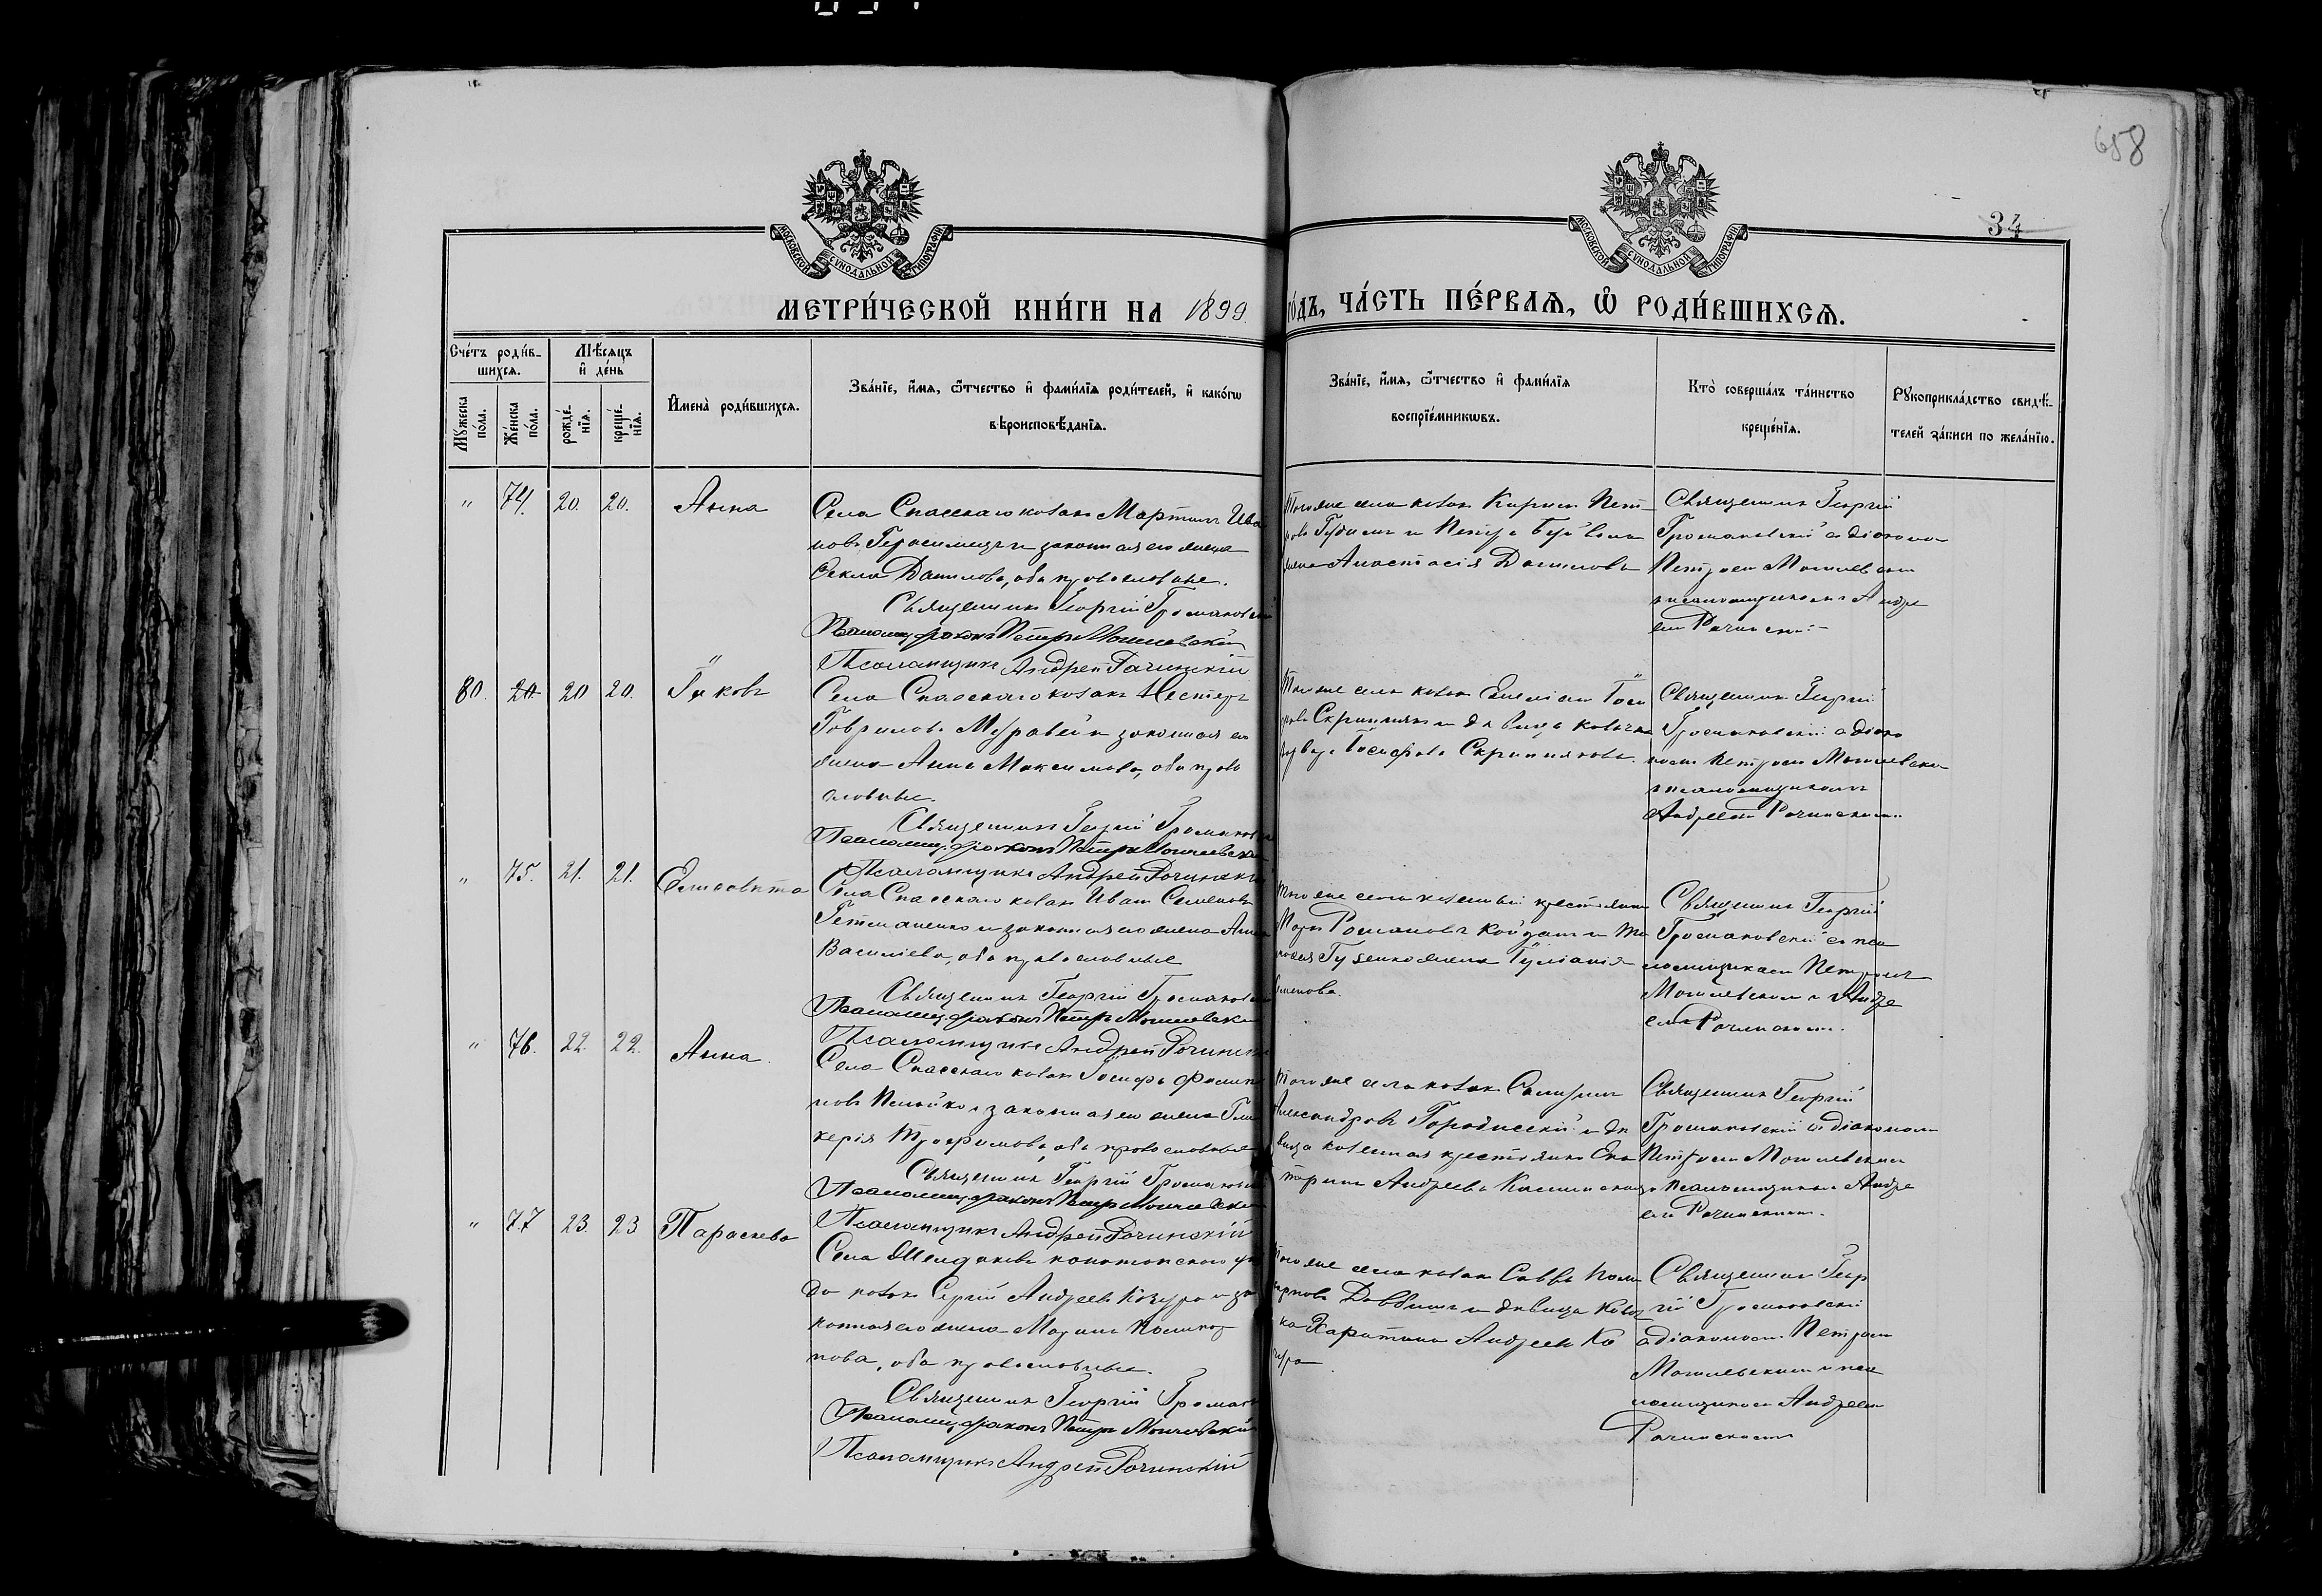 658
34
МОСКОВСКОЙ СѴНОДАЛЬНОЙ ТИПОГРАФІИ
МОСКОВСКОЙ СѴНОДАЛЬНОЙ ТИПОГРАФІИ
МЕТРИ́ЧЕСКОЙ КНИ́ГИ НА 1899
го́дъ, ЧА́СТЬ ПЕ́РВАѦ, Ѡ҆ РОДИ́ВШИХСѦ.
Сче́тъ роди́в-
шихсѧ.
Мꙋ́жеска по́ла.
Же́нска по́ла.
Мѣ́сѧцъ
и҆ де́нь
рожде́-
нїѧ.
креще́-
нїѧ.
И҆мена̀ роди́вшихсѧ.
Зва́нїе, и҆́мѧ, ѻ҆́тчество и҆ фами́лїѧ роди́телей, и҆ како́гѡ
вѣроисповѣ́данїѧ.
Зва́нїе, и҆́мѧ, ѻ҆́тчество и҆ фами́лїѧ
воспрїе́мникѡвъ.
Кто̀ соверша́лъ та́инство
креще́нїѧ.
Рꙋкоприкла́дство свидѣ́-
телей за́писи по жела́нїю.
" 74. 20. 20. Анна
Села Спасскаго козакъ Мартинъ Ива
новъ Герасимецъ и законная его жена
Ѳекла Данилова, оба православные.
Священникъ Георгій Громаковскій
Псаломщ. діаконъ Петръ Могилевскій
Псаломщикъ Андрей Рачинскій
Того же села козакъ Кирилъ Пет
ровъ и Петра
жена Анастасія Данилова
Священникъ Георгій
Громаковскій съ діакономъ
Петромъ Могилевскимъ
и псаломщикомъ Андре
емъ Рачинскимъ
80. 20 20 20. Іяковъ
Села Спасскаго козакъ Нестеръ
Гавриловъ Муравей и законная его
жена Анна Максимова, оба право
славные.
Священникъ Георгій Громаковскій
Псаломщ. діаконъ Петръ Могилевскій
Псаломщикъ Андрей Рачинскій
Того же села козакъ Емеліан Іоси
фовъ и дѣвица козачка
Іосифова
Священникъ Георгій
Громаковскій съ діако
номъ Петромъ Могилевскимъ
и псаломщикомъ
Андреемъ Рачинскимъ
" 75. 21. 21. Елисавета
Села Спасскаго козакъ Иванъ Семеновъ
Гетманенко и законная его жена Анна
Василіева, оба православные
Священникъ Георгій Громаковскій
Псаломщ. діаконъ Петръ Могилевскій
Псаломщикъ Андрей Рачинскій
Того же села казенный крестьянинъ
Романовъ и
жена Іуліанія
Священникъ Георгій
Громаковскій съ пса
ломщикомъ Петромъ
Могилевскимъ и Андре
емъ Рачинскимъ.
" 76. 22. 22. Анна
Села Спасскаго козакъ Іосифъ Филип
повъ и законная его жена Гли
керія Трофимова, оба православные
Священникъ Георгій Громаковскій
Псаломщ. діаконъ Петръ Могилевскій
Псаломщикъ Андрей Рачинскій
Того же села козакъ
Александровъ Городисскій и дѣ
вица казенная крестьянка Ека
терина Андреева
Священникъ Георгій
Громаковскій съ діакономъ
Петромъ Могилевскимъ
и псаломщикомъ Андре
емъ Рачинскимъ.
" 77 23. 23 Параскева
Села конотопскаго уѣз
да козакъ Сергій Андреевъ и за
конная его жена Марина Поликар
пова, оба православные.
Священникъ Георгій Громаков
Псаломщ. діаконъ Петръ Могилевскій
Псаломщикъ Андрей Рачинскій
Того же села козакъ Савва Поли
карповъ и дѣвица козач
ка Харитина Андреева
Священникъ Геор
гій Громаковскій
съ діакономъ Петромъ
Могилевскимъ и пса
ломщикомъ Андреемъ
Рачинскимъ